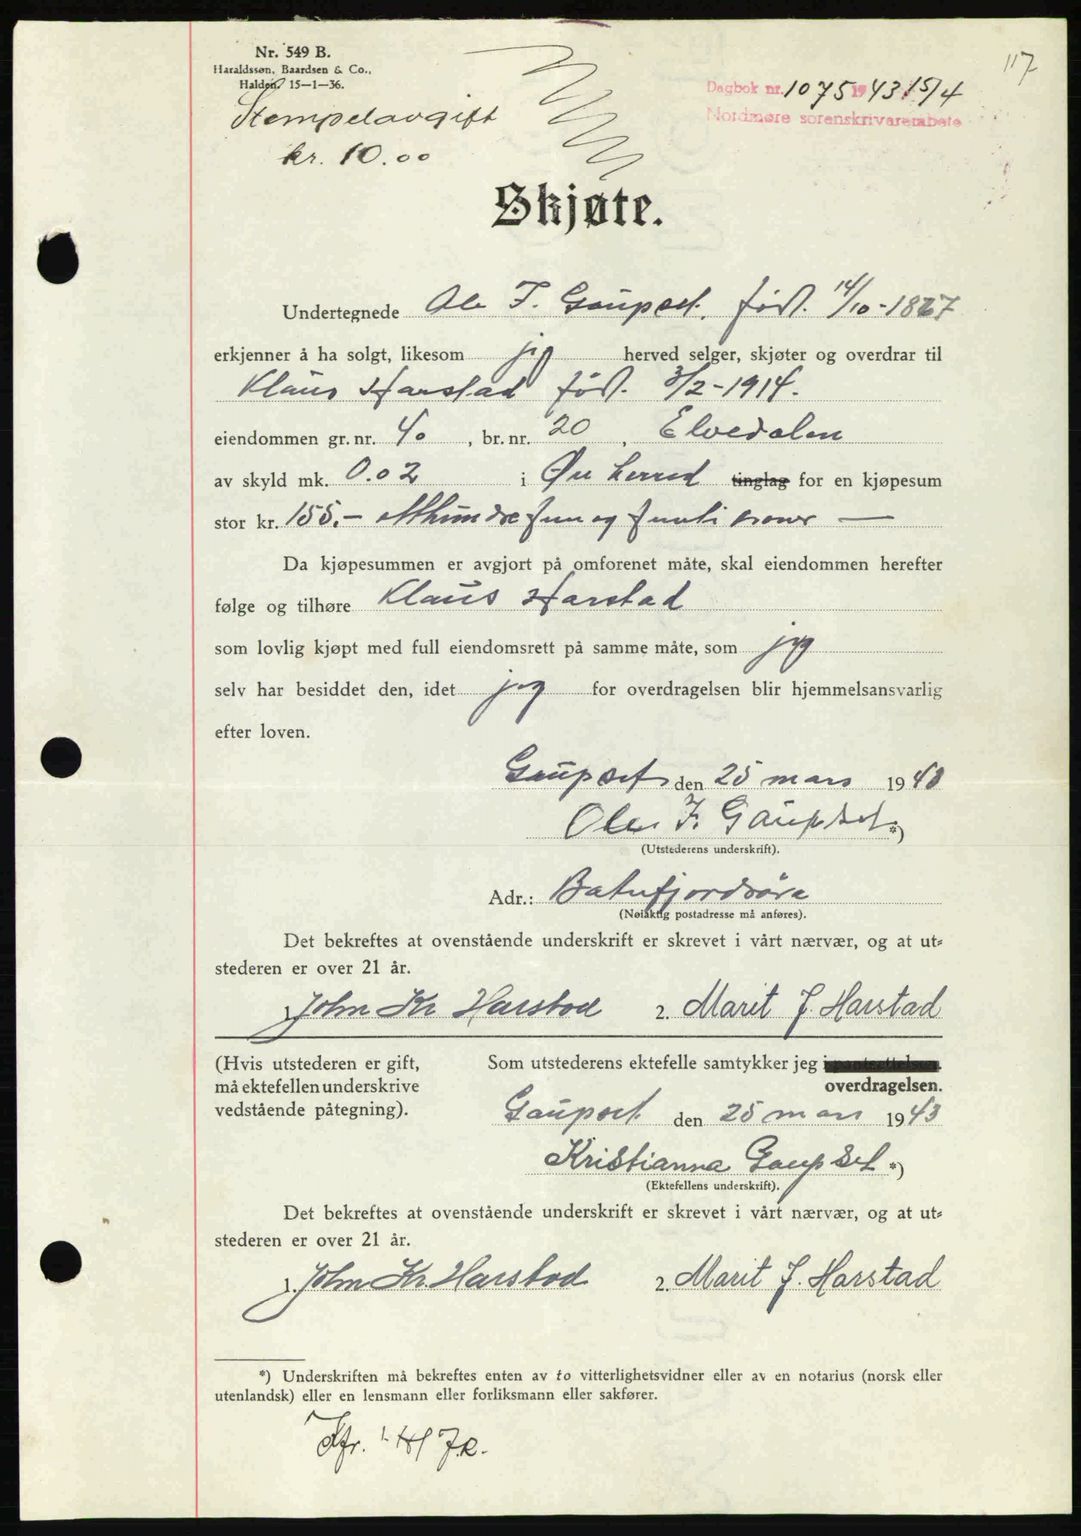 117
Nr. 549 B.
Haraldssøn, Baardsen & Co.,
Halden. 15—1—36.
Dagbok nr. 1075 1943 15/4
Nordmøre sorenskrivarembete
Stempelavgift
kr. 10.00
Skjøte.
Undertegnede Ole F. Gaupset, født. 14/10-1867
erkjenner å ha solgt, likesom jeg herved selger, skjøter og overdrar til
Klaus Harstad født. 3/2-1914.
eiendommen gr. nr. 40, br. nr. 20, Elvedalen
av skyld mk. 0.02 i Øre herred tinglag for en kjøpesum
stor kr. 155.— etthundre fem og femti kroner —
Da kjøpesummen er avgjort på omforenet måte, skal eiendommen herefter
følge og tilhøre Klaus Harstad
som lovlig kjøpt med full eiendomsrett på samme måte, som jeg
selv har besiddet den, idet jeg for overdragelsen blir hjemmelsansvarlig
efter loven.
Gaupset den 25 mars 1943
Ole F. Gaupset *)
(Utstederens underskrift).
Adr.: Batnfjordsøra
(Nøiaktig postadresse må anføres).
Det bekreftes at ovenstående underskrift er skrevet i vårt nærvær, og at ut-
stederen er over 21 år.
1. John Kr Harstad 2. Marit J. Harstad
(Hvis utstederen er gift, må ektefellen underskrive vedstående påtegning).
Som utstederens ektefelle samtykker jeg i pantsettelsen.
overdragelsen.
Gaupset den 25 mars 1943
Kristianna Gaupset *)
(Ektefellens underskrift).
Det bekreftes at ovenstående underskrift er skrevet i vårt nærvær, og at ut-
stederen er over 21 år.
1. John Kr. Harstad 2. Marit J. Harstad
*) Underskriften må bekreftes enten av to vitterlighetsvidner eller av en notarius (norsk eller
utenlandsk) eller en lensmann eller forliksmann eller sakfører.